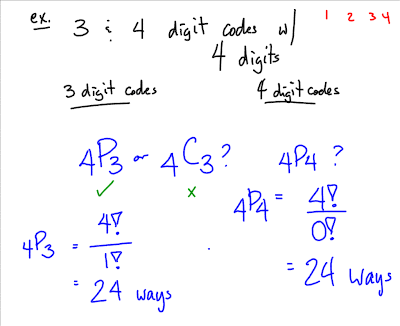 ex. 3 & 4 digit codes w/ 4 digits
1 2 3 4
3 digit codes
4 digit codes
4P3 or 4C3?
✓ x
4P3 = 4!/1!
= 24 ways
4P4 ?
4P4 = 4!/0!
= 24 ways